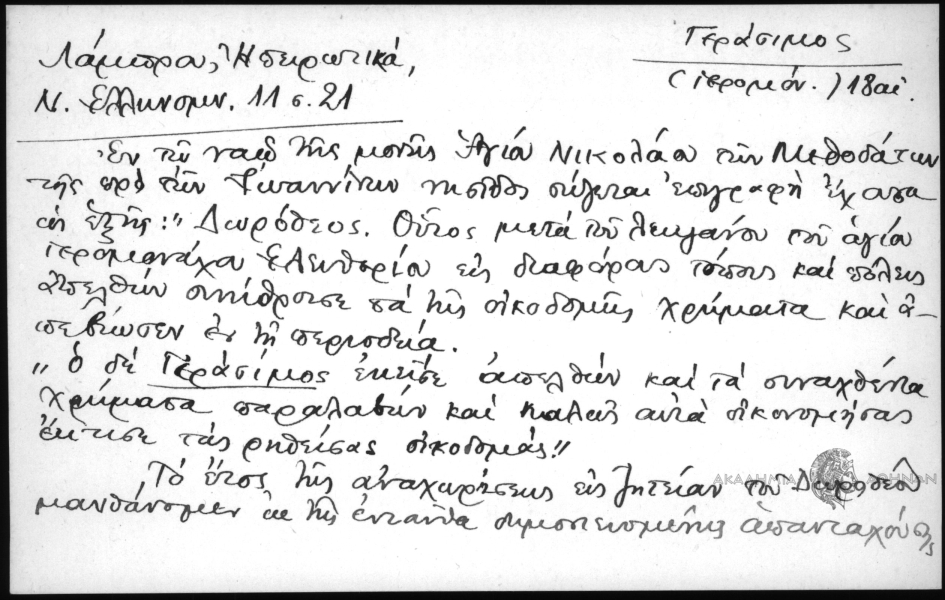 Λάμπρου, Ἠπειρωτικά,
Ν. Ἑλληνομν. 11 σ. 21
Γεράσιμος
(ἱερομόν.) 18 αἰ.
Ἐν τῷ ναῷ τῆς μονῆς Ἁγίου Νικολάου τῶν Μεθοδάτων
τῆς πρὸ τῶν Ἰωαννίνων νησῖδος σῴζεται ἐπιγραφὴ ἔχουσα
ὡς ἑξῆς: " Δωρόθεος. Οὗτος μετὰ τοῦ λειψάνου τοῦ ἁγίου
ἱερομονάχου Ἐλευθερίου εἰς διαφόρους τόπους καὶ πόλεις
ἀπελθών συνήθροισε τὰ τῆς οἰκοδομῆς χρήματα καὶ ἀ-
πεβίωσεν ἐν τῇ περιοδείᾳ.
" ὁ δέ Γεράσιμος ἐκεῖσε ἀπελθών καὶ τά συναχθέντα
χρήματα παραλαβών καὶ καλῶς αὐτά οἰκονομήσας
ἔκτισε τάς ῥηθείσας οἰκοδομάς."
Τὸ ἔτος τῆς ἀναχωρήσεως εἰς ζητείαν τοῦ Δωροθέου
μανθάνομεν ἐκ τῆς ἐνταῦθα δημοσιευομένης ἀπανταχούσης
ΑΚΑΔΗΜΙΑ ΑΘΗΝΩΝ